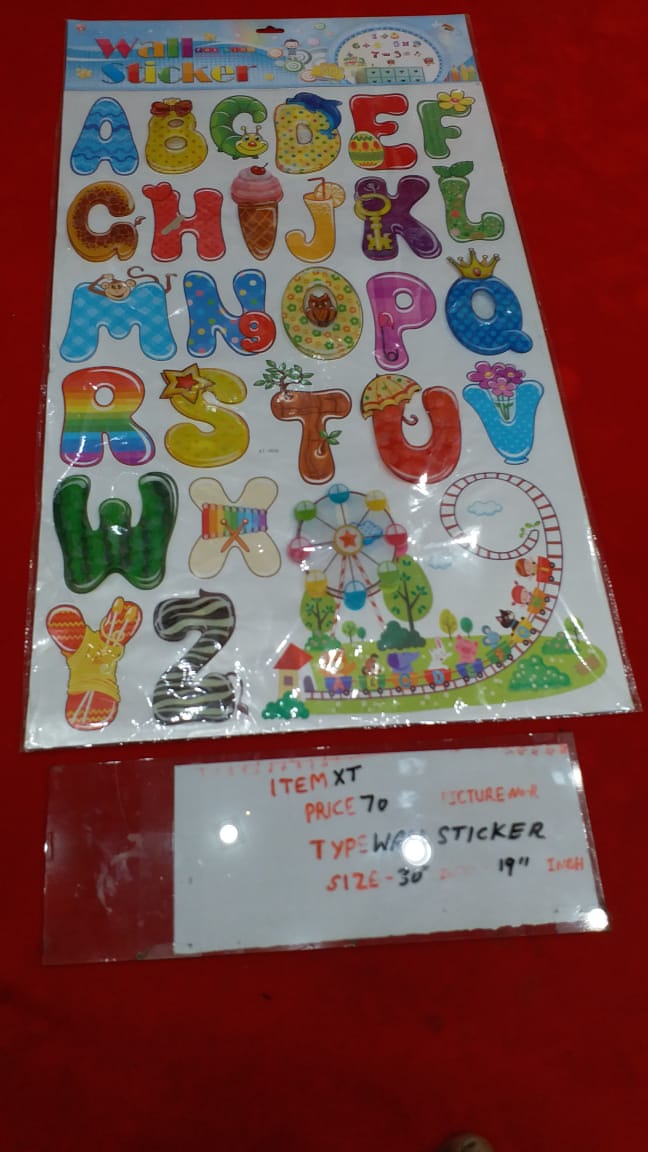 Wall
Sticker
A B C D E F
G H I J K L
M N O P Q
R S T U V
W X
Y Z
ITEM XT
PRICE 70
TYPE WALL STICKER
SIZE - 30" 19" INCH